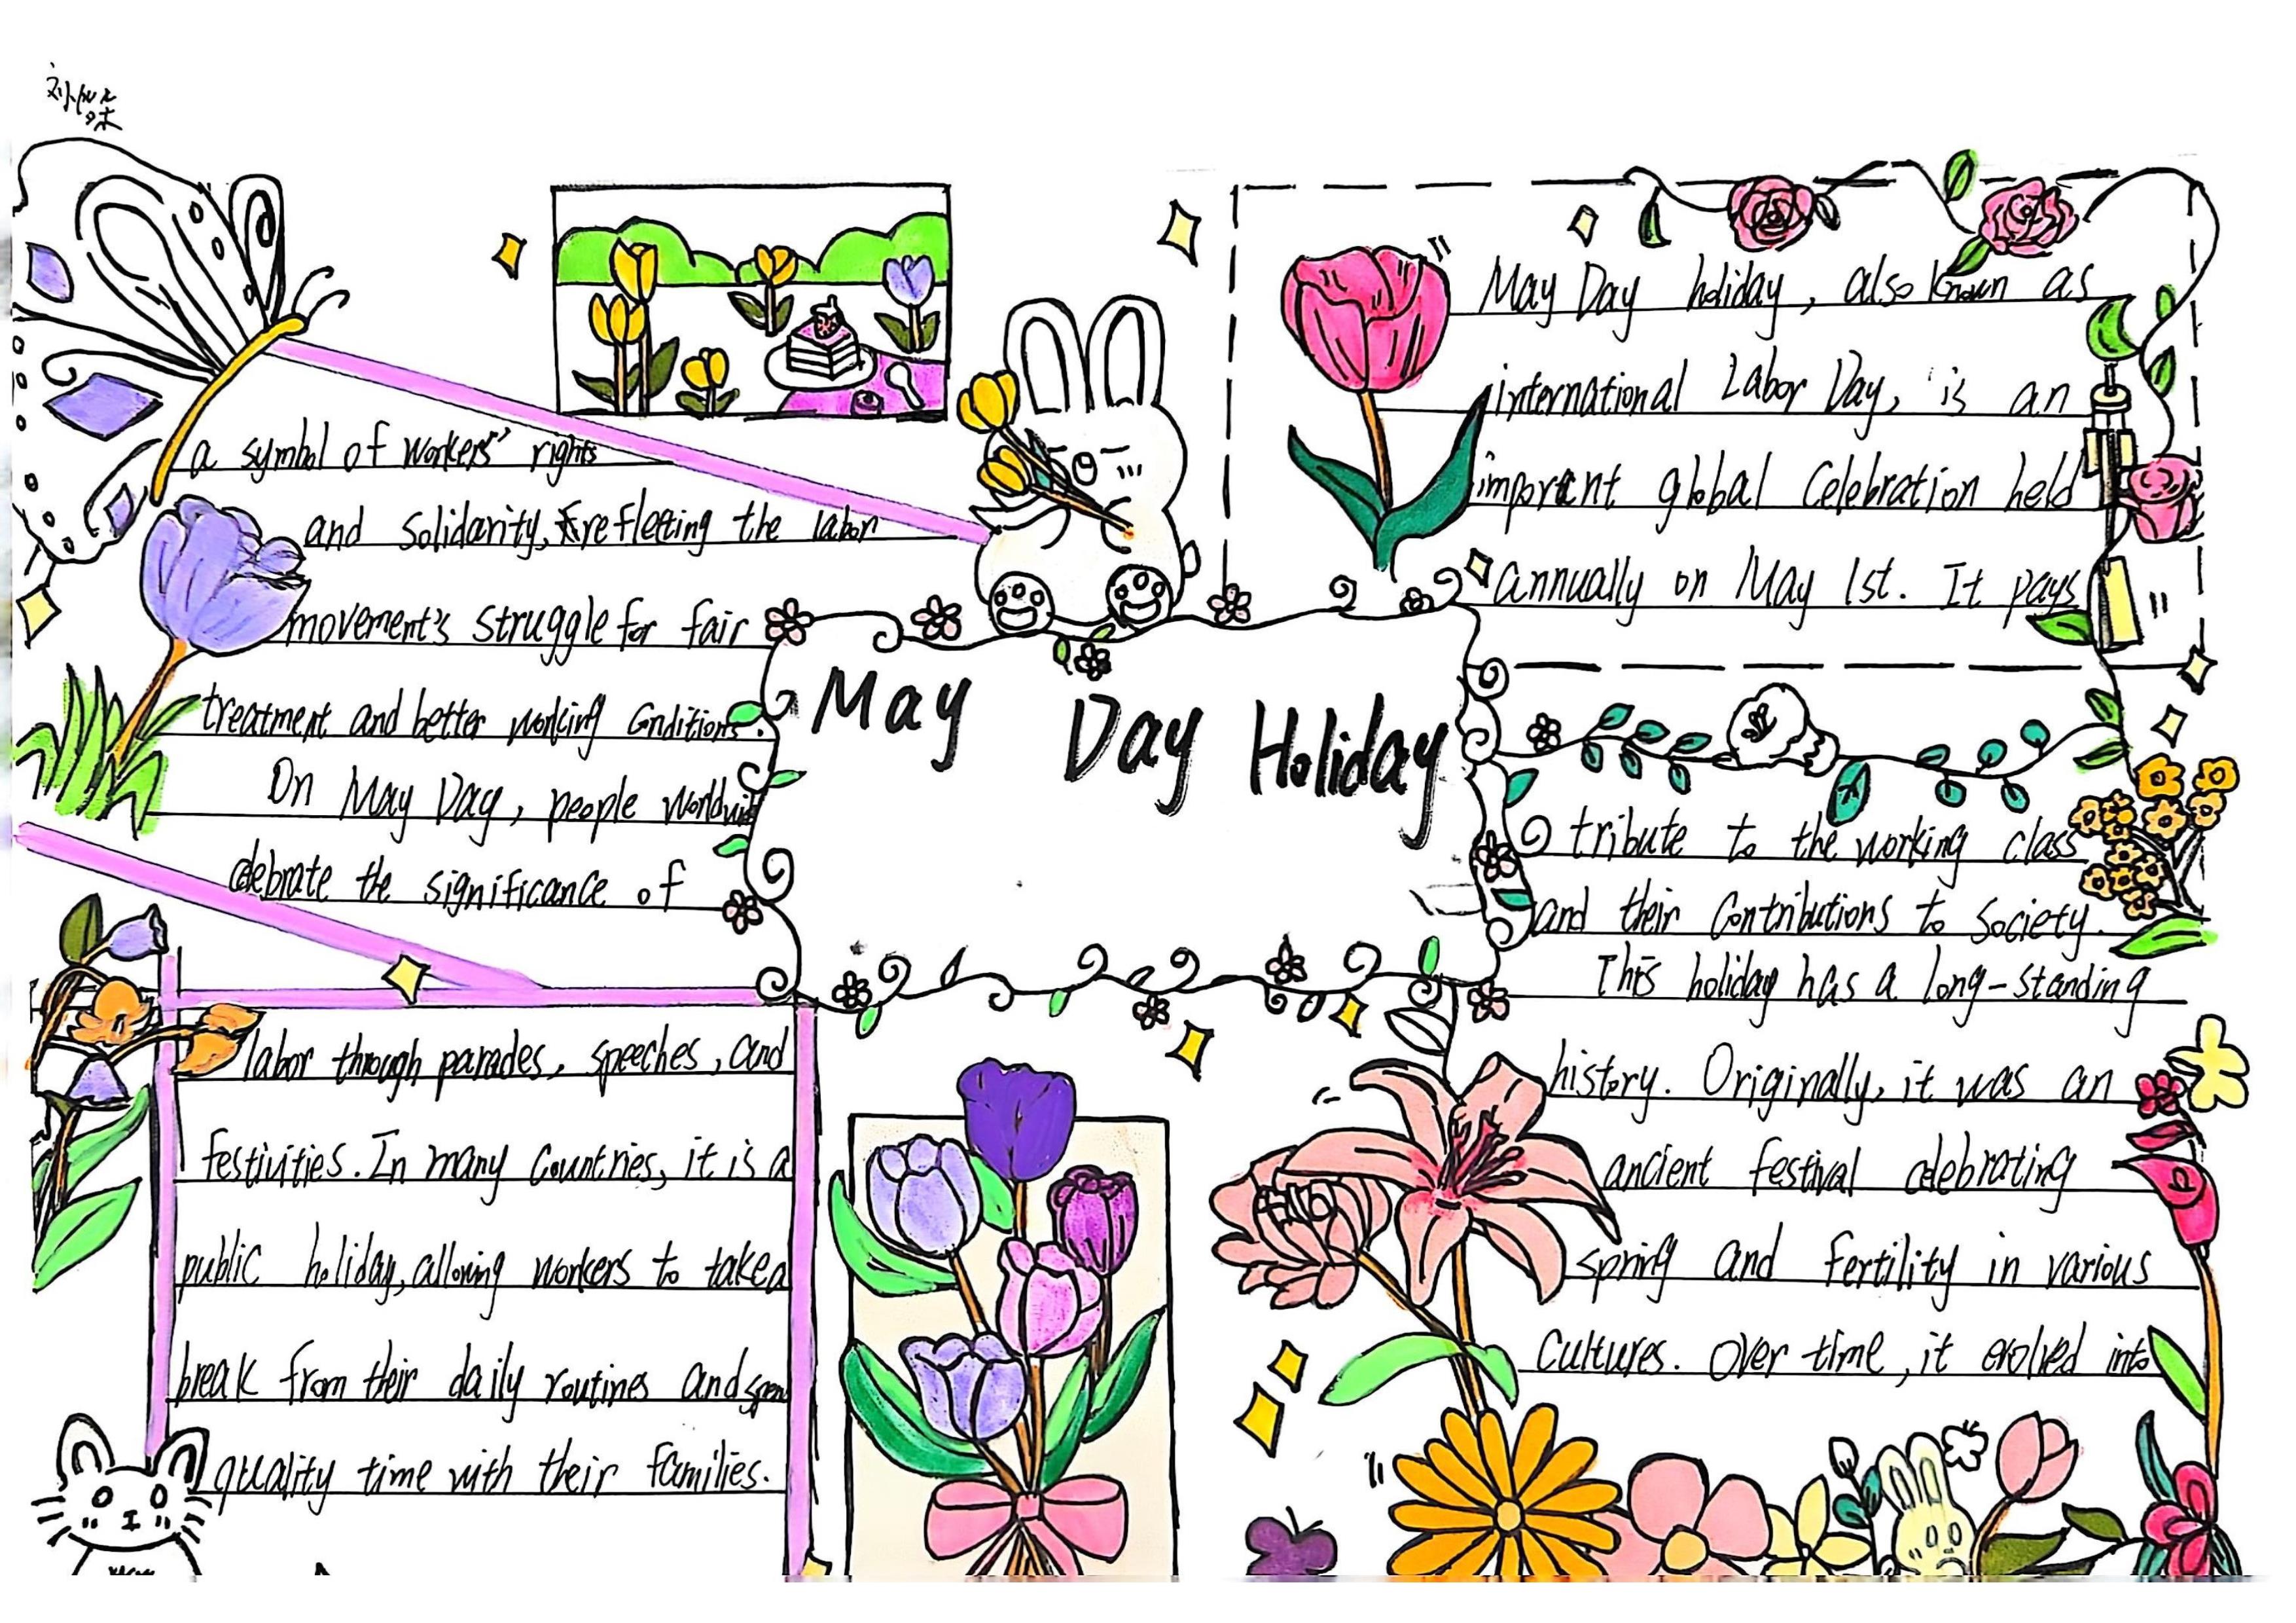 May Day Holiday
May Day holiday, also known as
international Labor Day, is an
important global Celebration held
annually on May 1st. It pays
tribute to the working class
and their Contributions to Society.
This holiday has a long-standing
history. Originally, it was an
ancient festival celebrating
spring and fertility in various
Cultures. Over time, it evolved into
a symbol of workers' rights
and Solidarity, refleting the labor
movement's struggle for fair
treatment and better working Conditions.
On May Day, people worldwide
celebrate the significance of
labor through parades, speeches, and
festivities. In many Countries, it is a
public holiday, allowing workers to take a
break from their daily routines and spen
quality time with their families.